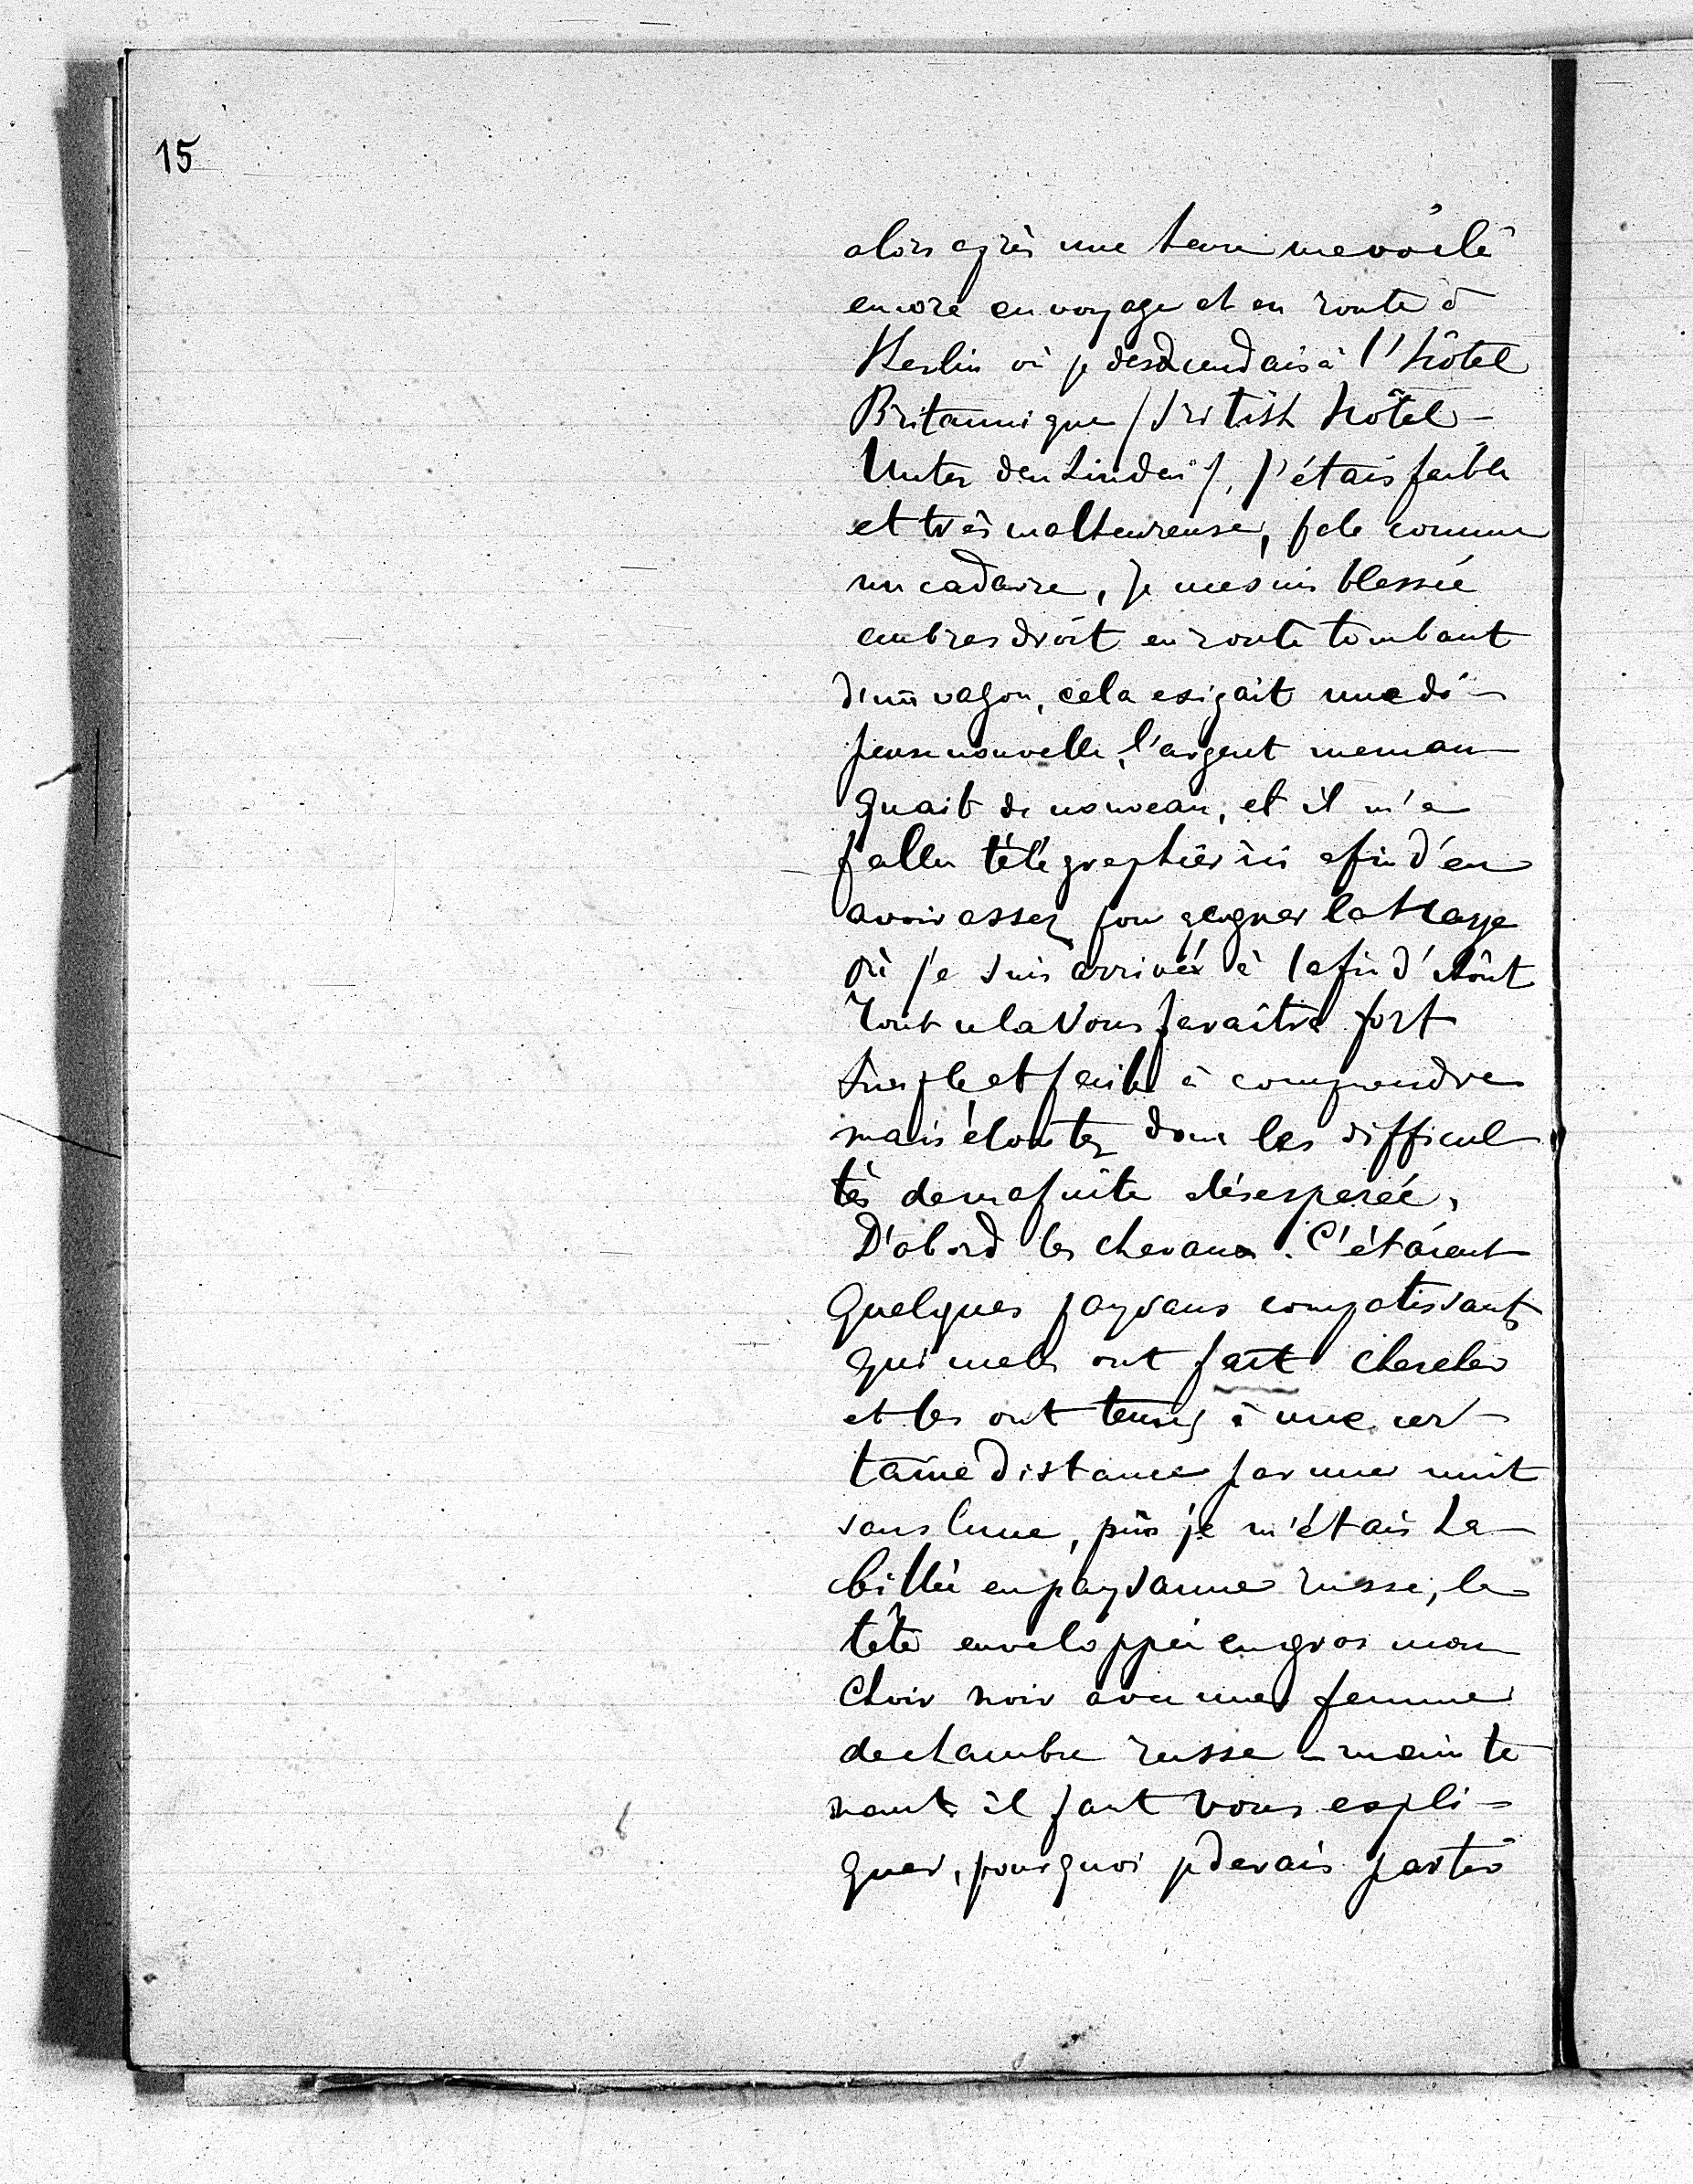 15
alors après une heure me voilà
encore en voyage et en route à
Berlin où je descendais à l'hôtel
Britannique / British hôtel -
Unter den Linden /, j'étais faible
et très malheureuse, pale comme
un cadavre, je me suis blessée
au bras droit en route tombant
d'un vagon, cela exigait une dé-
pense nouvelle, l'argent me man-
quait de nouveau, et il m'a
fallu télégraphier ici afin d'en
avoir assez pour gagner la Haye
où je suis arrivée à la fin d'Août
Tout cela Vous paraîtra fort
simple et facile à comprendre
mais écoutez donc les difficul-
tés de ma fuite désesperée,
D'abord les chevaux. C'étaient
Quelques paysans compatissants
qui me les ont fait chercher
et les ont tenus à une cer-
taine distance par une nuit
sans lune, puis je m'étais ha-
billée en paysanne russe, la
tête enveloppée en gros mou-
choir noir avec une femme
de chambre russe - mainte
nant il faut vous expli-
quer, pourquoi je devais partir